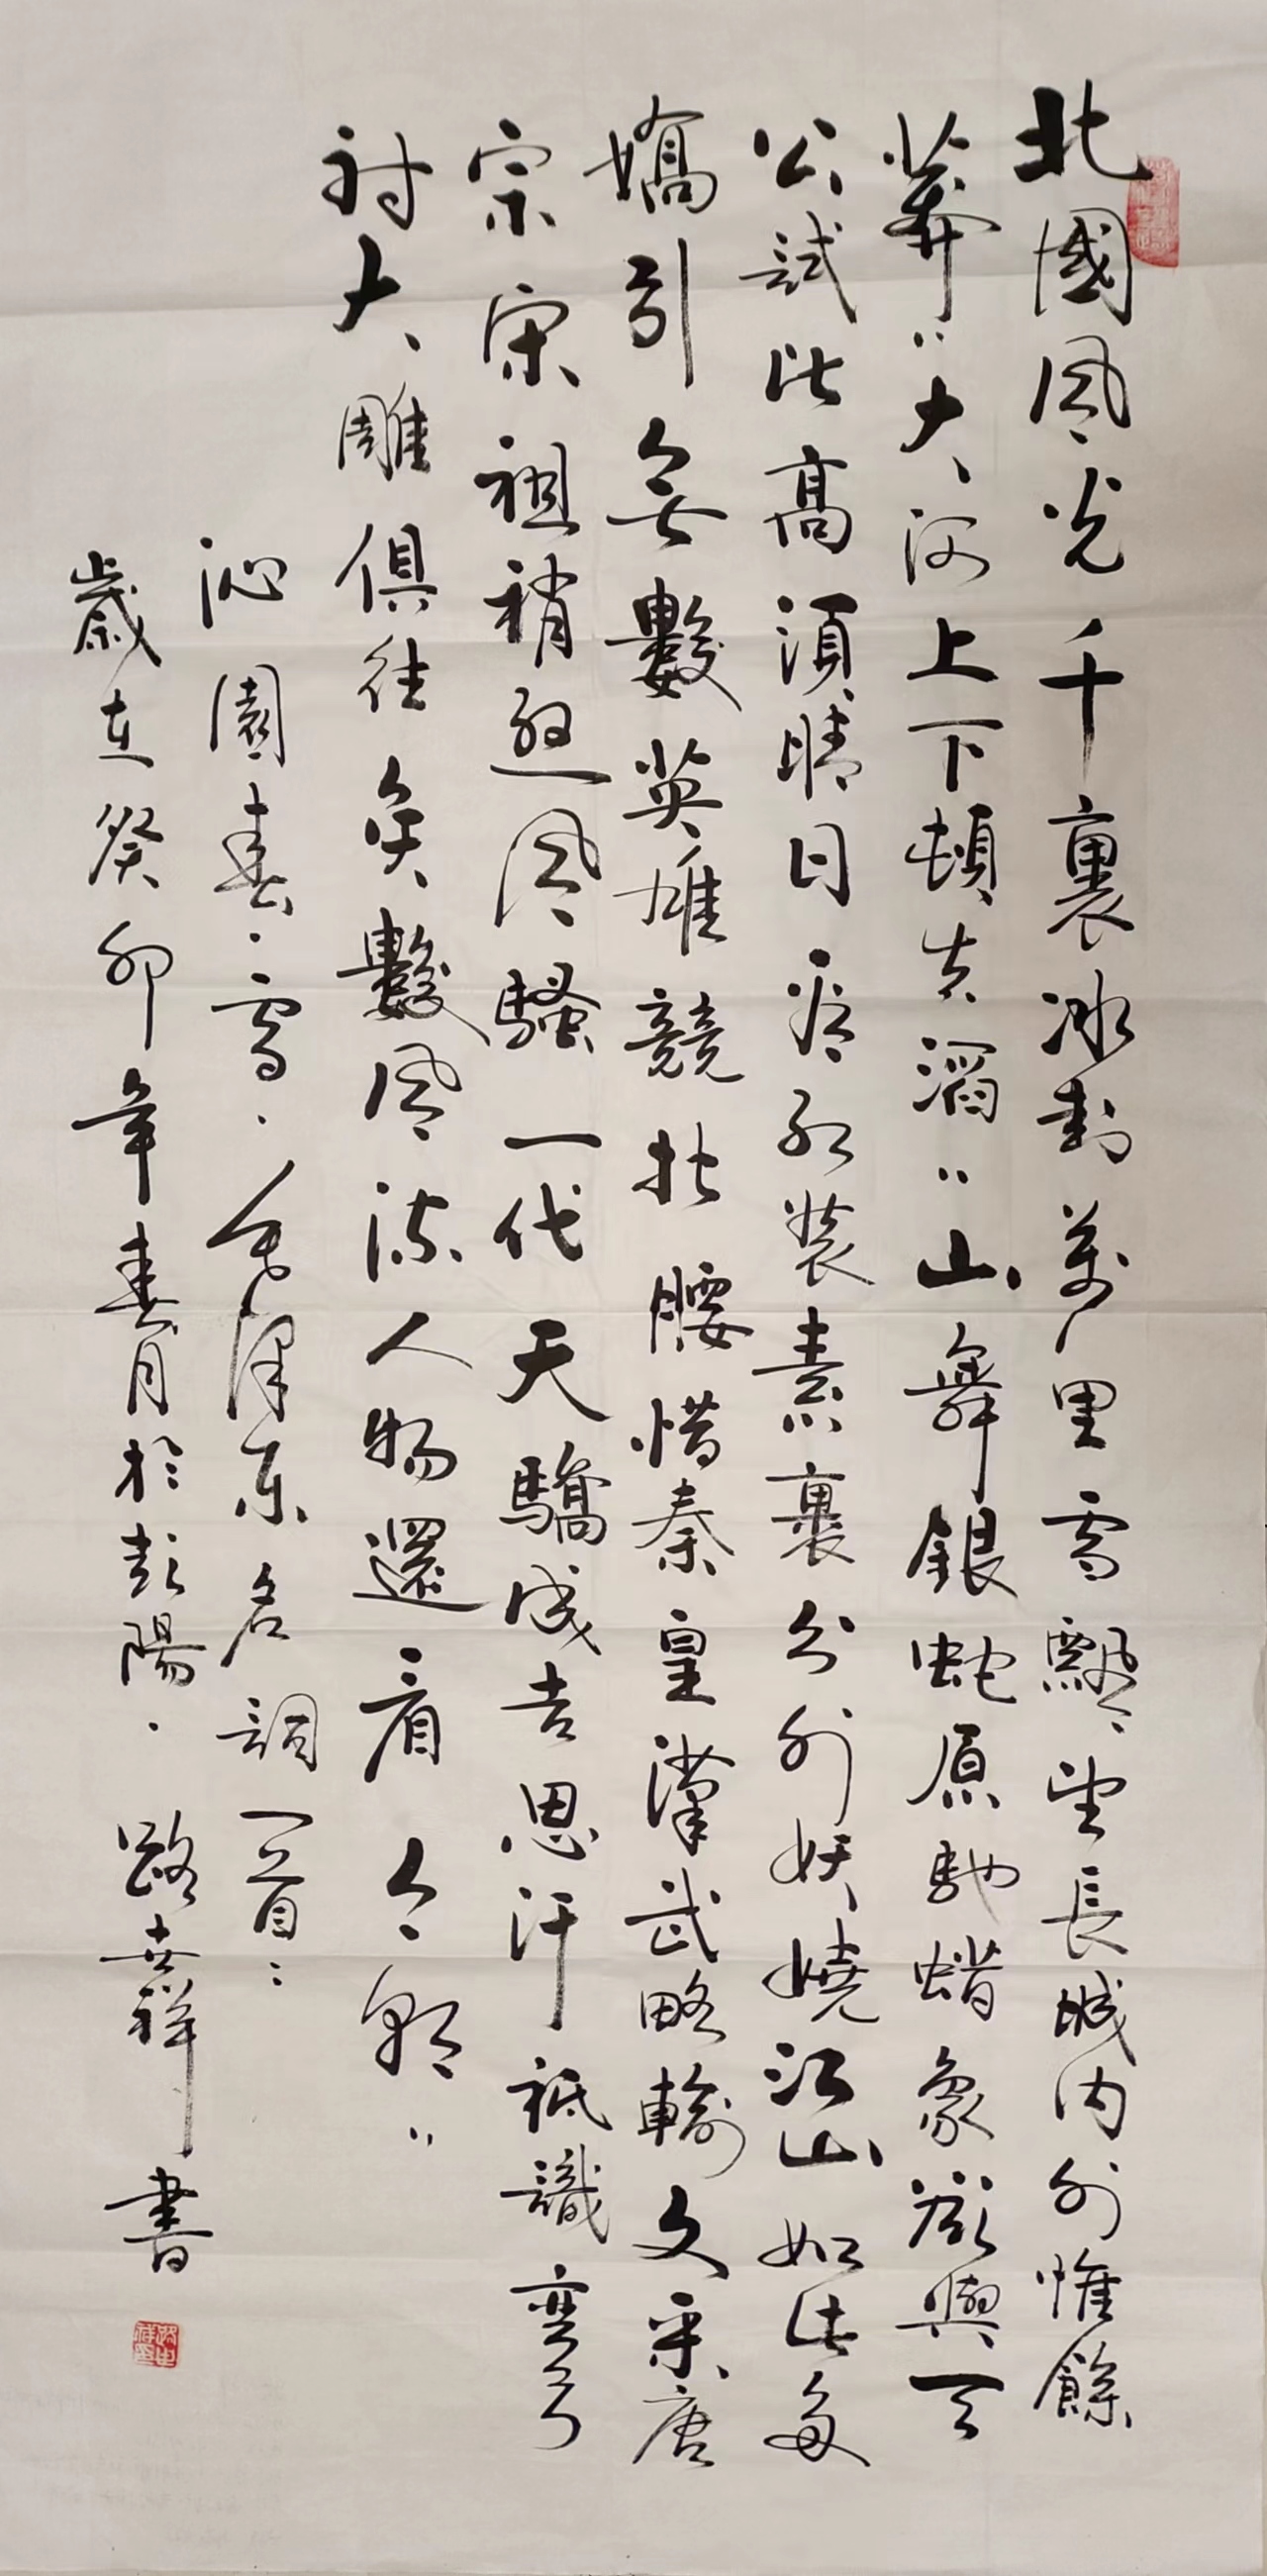 北國風光千裏冰封萬里雪飄望長城内外惟餘
莽〃大河上下頓失滔〃山舞銀蛇原馳蜡象欲與天
公試比高須晴日看紅裝素裹分外妖嬈江山如此多
嬌引無數英雄競折腰惜秦皇漢武略輸文采唐
宗宋祖稍遜風騷一代天驕成吉思汗祗識彎弓
射大雕俱往矣數風流人物還看今朝〃
沁園春·雪·毛澤東名詞一首:
歲在癸卯年春月於彭陽·路世祥書
路世祥印